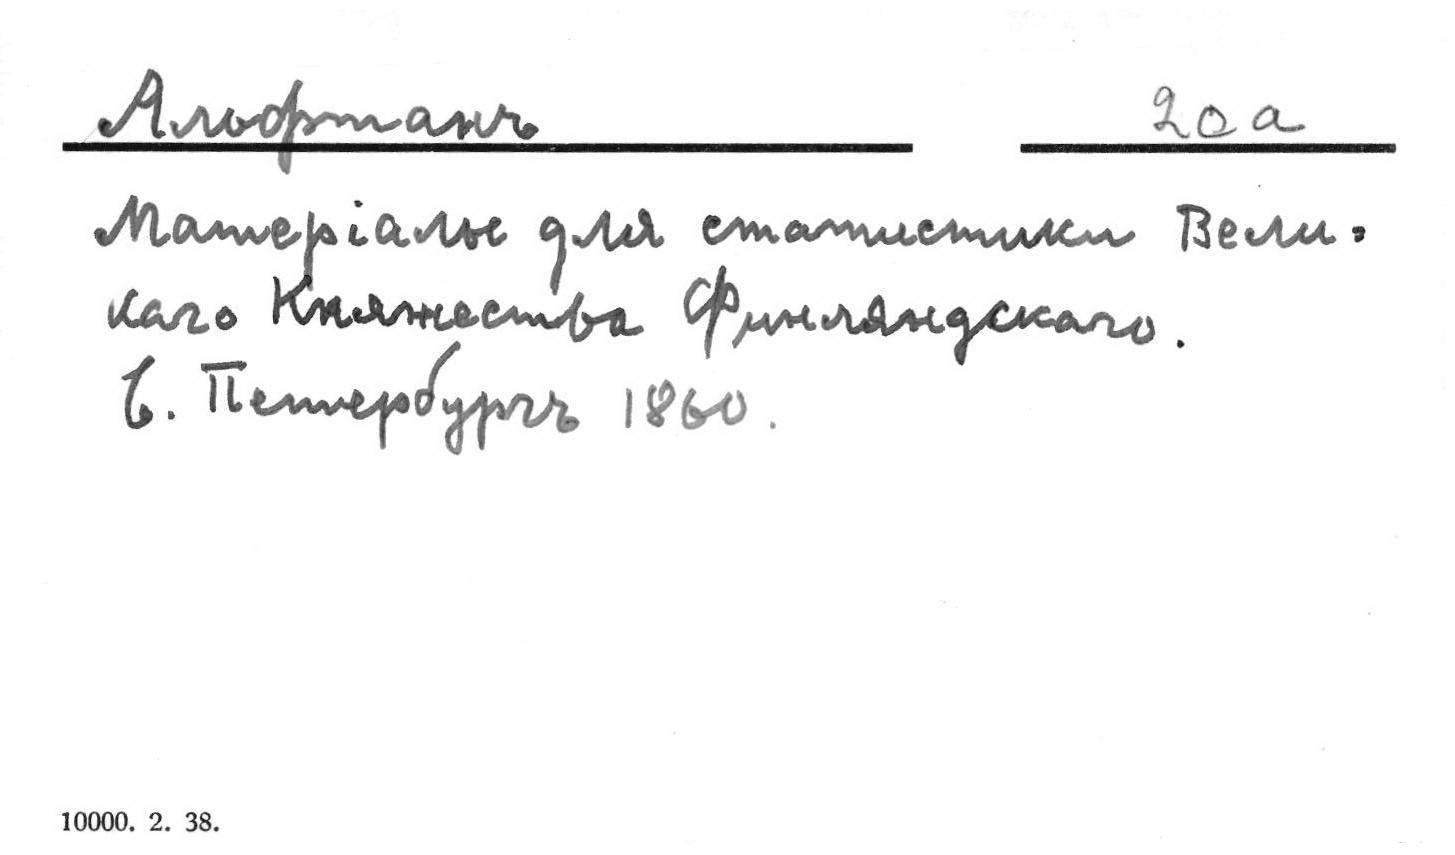 Альфтанъ 20 a
Матеріалы для статистики Вели-
каго Княжества Финляндскаго.
С. Петербургъ 1860.
10000. 2. 38.